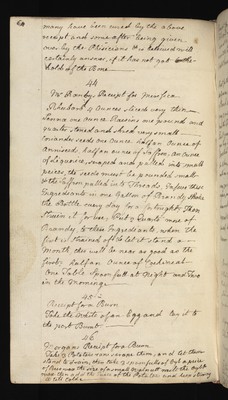 many have been cured by the above
receipt and some after being given
over by the Phisicians
certainly answer, if it has not got
hold of the Bone
44
Mr Ranbys Receipt for
Rhubarb 4 Ounces sliced very thin
Senna one Ounce Raisins one pound and
quarter stoned and sliced very small
Coriander seeds one Ounce half an Ounce of
Anniseed, half an Ounce of Saffron, an Ounce
of Liquorice, scraped and
pieces, the seeds must be pounded small
& the Saffron pulled in Threads. Infuse these
Ingredients in one Gallon of Brandy shake
the Bottle every day for a fortnight, Then
Strain it for use, Put 2 Quarts more of
Brandy to these Ingredients, when the
first is strained off & let it stand a
Month this will be near as good as the
first. half an Ounce of Cochineal
One Table Spoon full at Night and Two
in the Morning
45
Receipt for a Burn
Take the White of an Egg and lay it to
the part Burnt
46
Receipt for a Burn
Take 2 Potatoes raw scrape them, and let them
stand to Drain, then take 2 spoonfulls of Oyl a peice
of Beeswax the size of a small
the Oyl
the Juice of the Potatoes and keep stirring
it till Cold